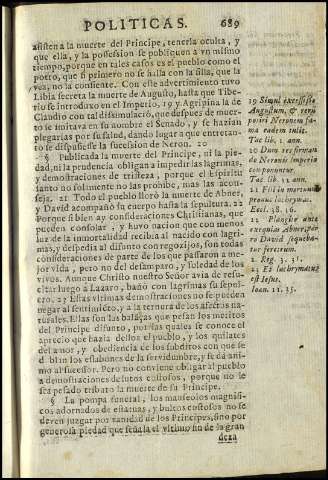 POLITICAS. 689
assisten a la muerte del Principe, tenerla oculta, y
que ella, y la possession se publiquen a vn mismo
tiempo, porque en tales casos es el pueblo como el
potro, que si primero no se halla con la silla, que la
vea, no la consiente. Con este advertimiento tuvo
Libia secreta la muerte de Augusto, hasta que Tibe-
rio se introduxo en el Imperio, 19 y Agripina la de
Claudio con tal dissimulacio, que despues de muer-
to se imitava en su nombre el Senado, y se hazian
plegarias por su salud, dando lugar a que entretan-
to se dispusiesse la sucession de Neron. 20
§ Publicada la muerte del Principe, ni la pie-
dad, ni la prudencia obligan a impedir las lagrimas,
y demostraciones de tristeza, porque el Espiritu
santo no solamente no las prohibe, mas las acon-
seja. 21 Todo el pueblo lloró la muerte de Abner,
y David acompañó su cuerpo hasta la sepultura. 22
Porque si bien ay consideraciones Christianas, que
pueden consolar, y huvo nacion que con menos
luz de la inmortalidad recibia al nacido con lagri-
mas, y despedia al difunto con regozijos, son todas
consideraciones de parte de los que passaron a me-
jor vida, pero no del desamparo, y soledad de los
vivos. Aunque Christo nuestro Señor avia de resu-
citar luego a Lazaro, bañó con lagrimas su sepul-
cro. 23 Estas vltimas demostraciones no se pueden
negar al sentimiento, y a la ternura de los afectos na-
turales. Ellas son las balanças que pesan los meritos
del Principe difunto, por las quales se conoce el
aprecio que hazia dellos el pueblo, y los quilates
del amor, y obediencia de los subditos con que se
doblan los eslabones de la servidumbre, y se dá ani-
mo al sucessor. Pero no conviene obligar al pueblo
a demostraciones de lutos costosos, porque no le
sea pesado tributo la muerte de su Principe.
§ La pompa funeral, los mauseolos magnifi-
cos adornados de estatuas, y bultos costosos no se
deven juzgar por vanidad de los Principes, sino por
generosa piedad que señala el vltimo fin de la gran
deza
19 Simul excessisse
Augustum, & rerū
potiri Neronem fa-
ma eadem tulit.
Tac. lib. 1. ann.
20 Dum res forman
do Neronis Imperio
componuntur.
Tac. lib. 12. ann.
21 Fili in mortuum
produc lachrymas.
Eccl. 38. 16.
22 Plangite ante
exequias Abner, por
ro David sequeba-
tur feretrum.
2. Reg. 3. 31.
23 Et lachrymatus
est Iesus.
Ioan. 11. 35.